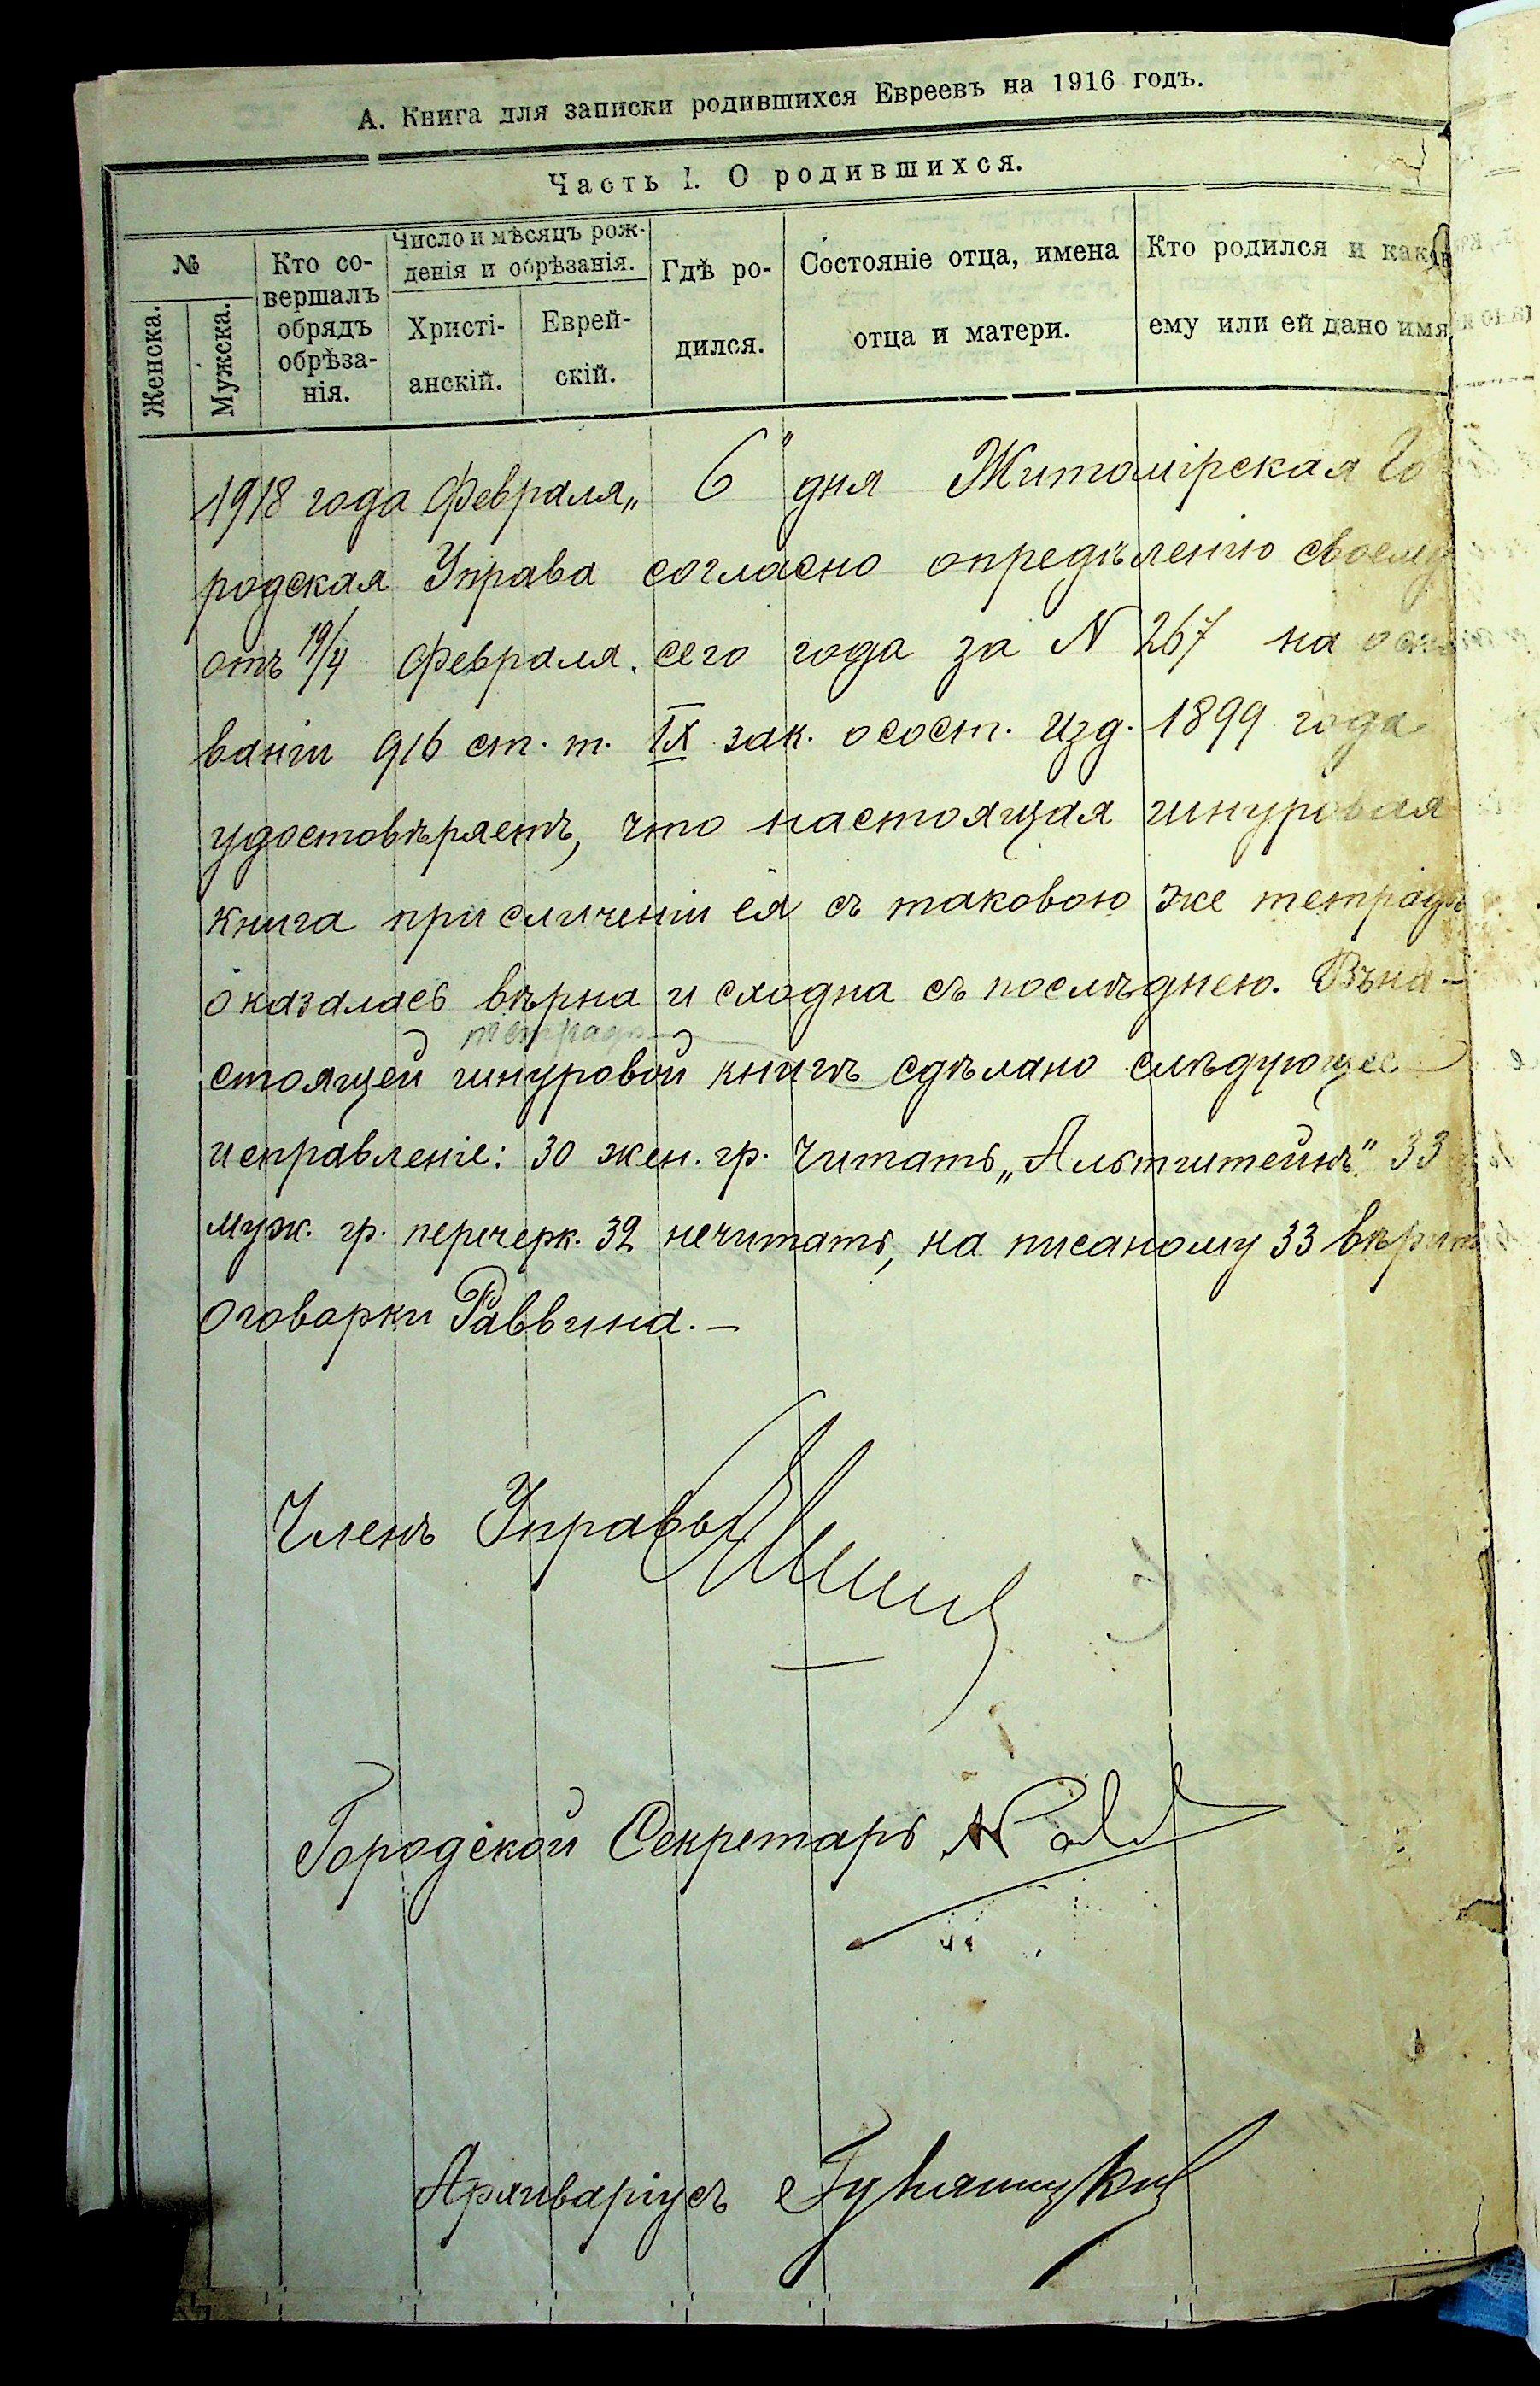 А. Книга для записки родившихся Евреевъ на 1916 годъ.
Часть I. О родившихся.
№
Женска.
Мужска.
Кто со-
вершалъ
обрядъ
обрѣза-
нія.
Число и мѣсяцъ рож-
денія и обрѣзанія.
Христі-
анскій.
Еврей-
скій.
Гдѣ ро-
дился.
Состояніе отца, имена
отца и матери.
Кто родился и како
ему или ей дано имя
1918 года Февраля „6" дня Житомірская Го
родская Управа согласно опредѣленію своему
отъ 19/4 Февраля сего года за N 267 на осно
ваніи 916 ст. т. IX зак. о сост. изд. 1899 года
удостовѣряетъ, что настоящая шнуровая
книга при сличеніи ея съ таковою же тетрадь
оказалась вѣрна и сходна съ послѣднею. Въ на-
тетрадь
стоящей шнуровой книгѣ сдѣлано слѣдующее
исправленіе: 30 жен. гр. читать „Альтштейнъ" 33
муж. гр. перечерк. 32 нечитать, на писаному 33 вѣрить
оговорки Раввина. —
Членъ Управы
Городской Секретарь
Архиваріусъ